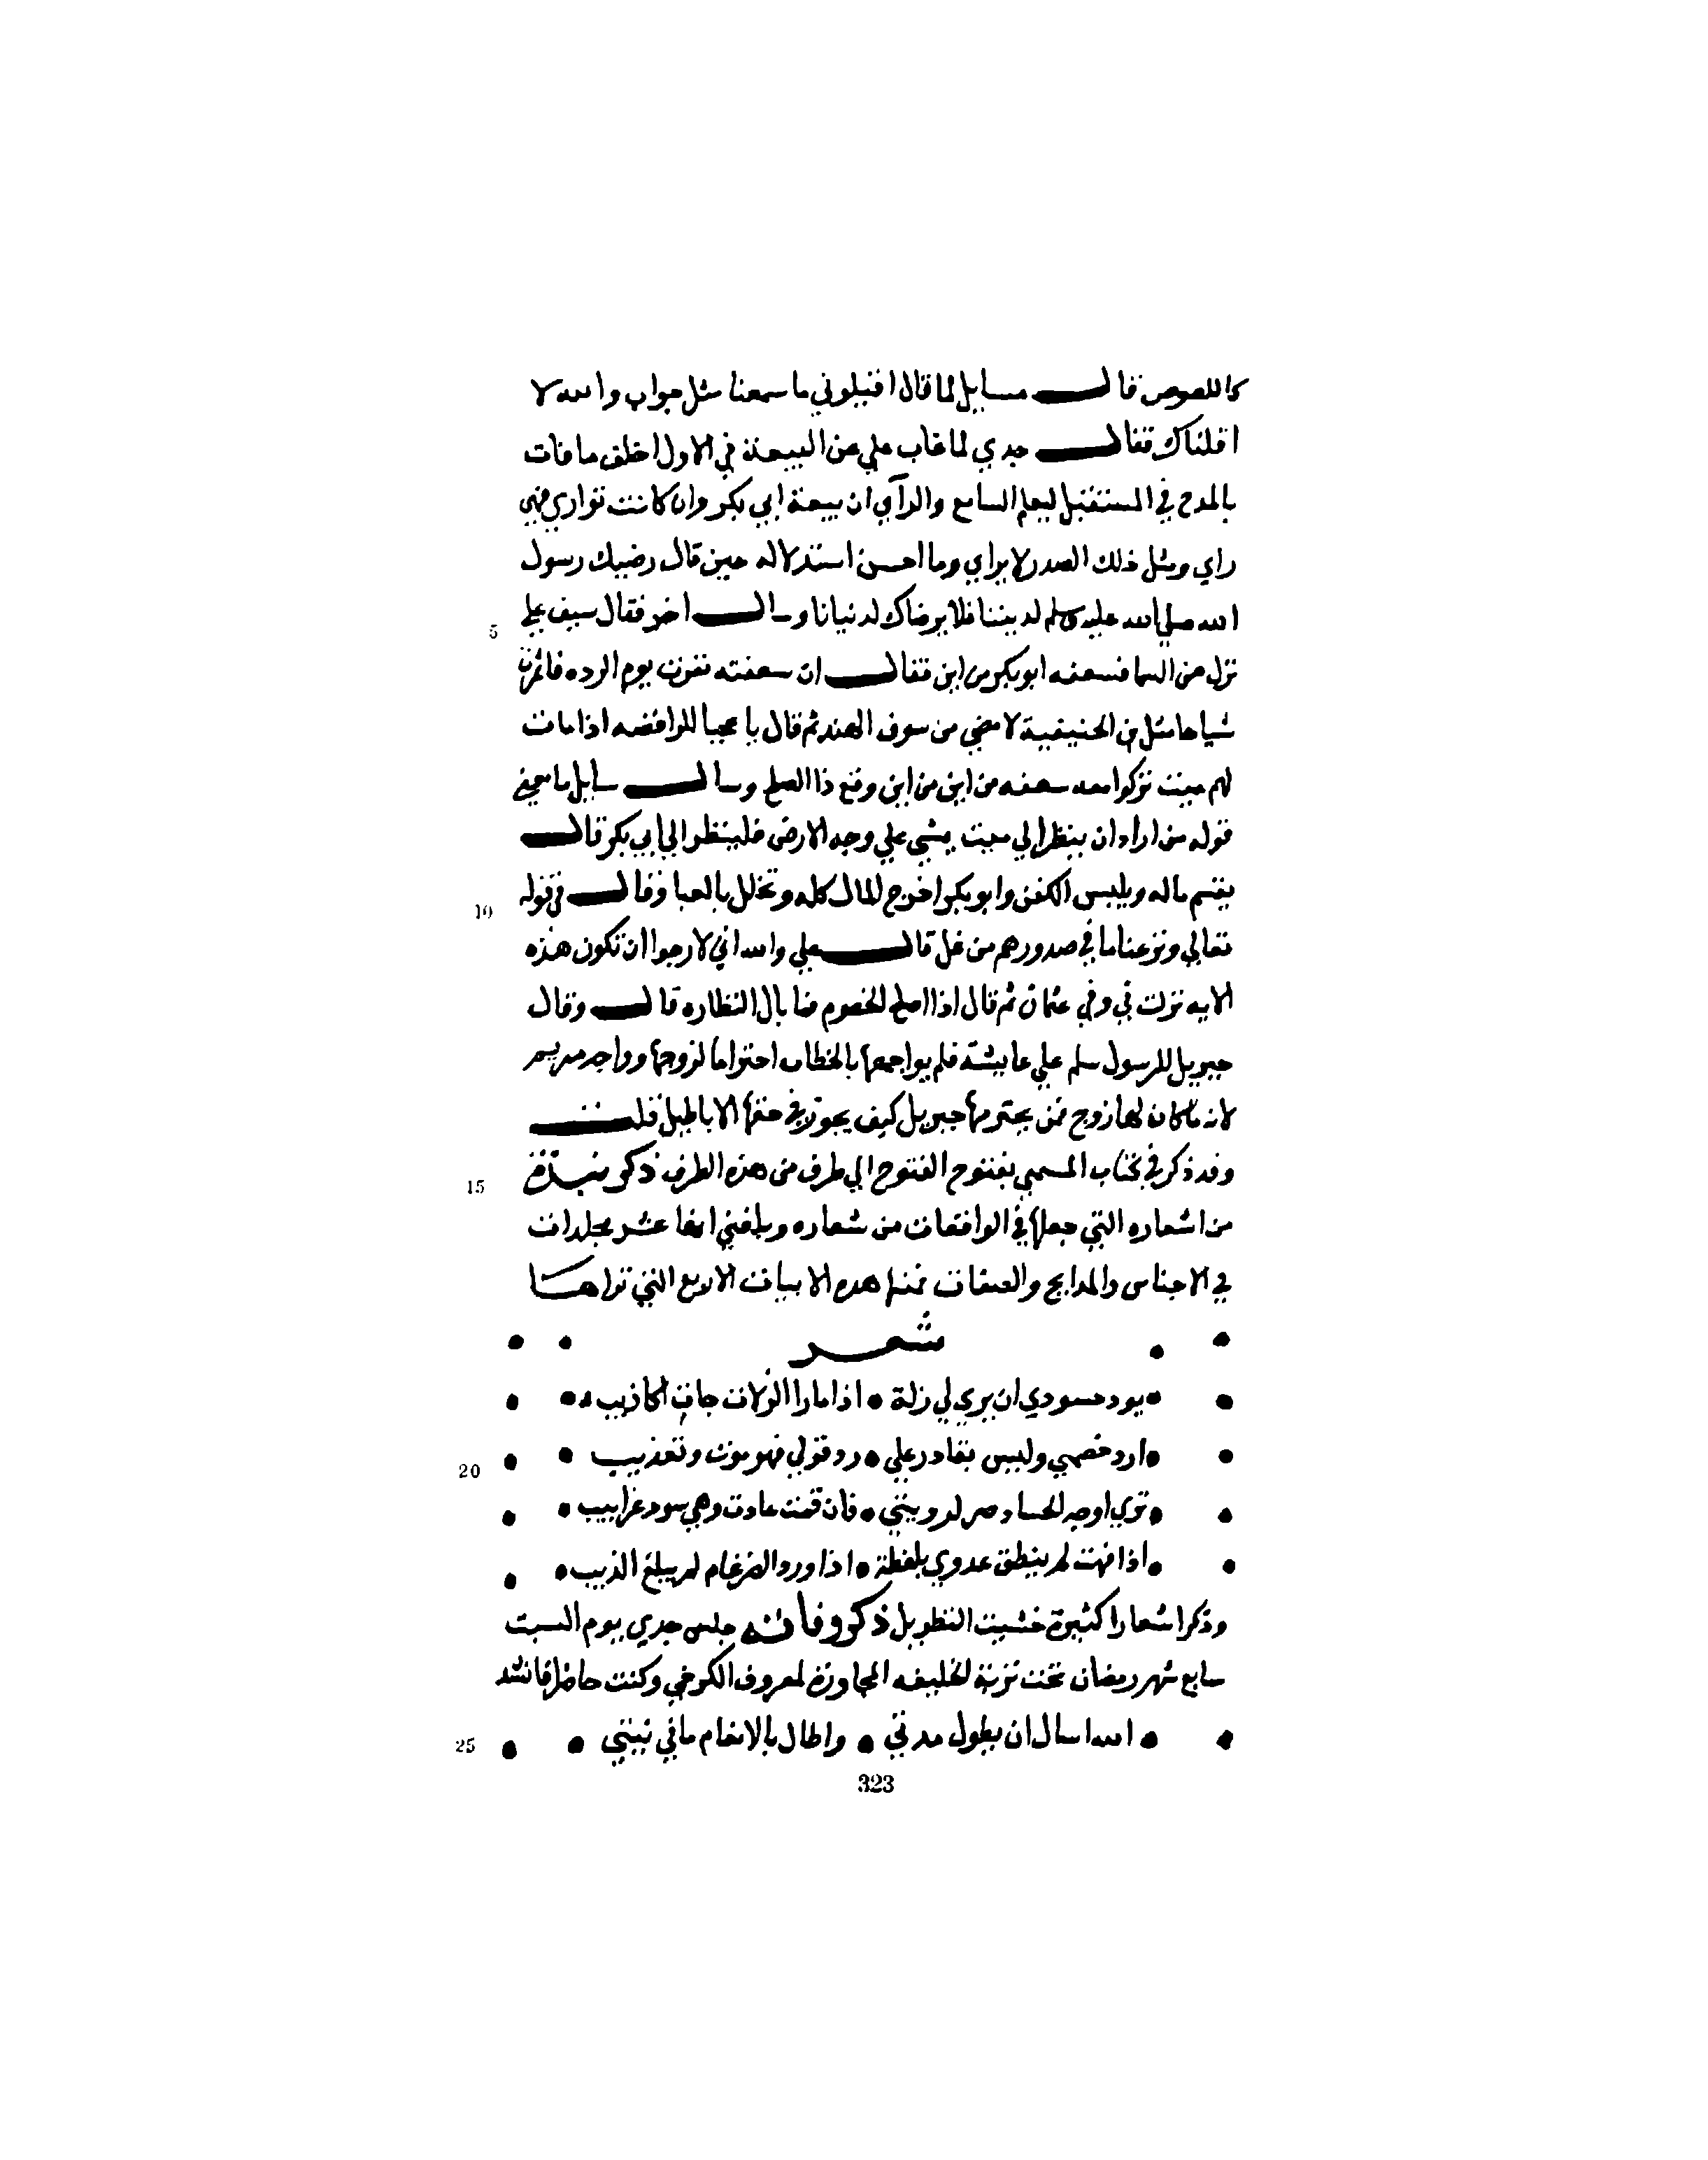 كاللصوص فقال مسايل لما قال اقيلوني ما سمعنا مثل جواب والله لا
اقلناك فقال جدي لما غاب علي عن البيعة في الاول اخلف ما فات
بالمدح في المستقبل ليعلم السامع والرآي ان بيعة ابي بكر وان كانت
راي ومثل ذلك الصدر لا يراي وما احسن استدلاله حين قال رضيك رسول
الله صلي الله عليه وسلم لديننا فلا يرضاك لدنيانا وسال اخر فقال سيف علي
5
نزل من السما فسعفه ابو بكر من اين فقال ان سعفته نفرت يوم الرده
لا مضي من سوف الهند ثم قال يا عجبا للرافضه اذا مات
لهم ميت تركوا معه سعفه من اين من اين وقع ذا الصلح وسال سايل ما معني
قوله من اراد ان ينظر الي ميت يمشي علي وجه الارض فلينظر الي ابي بكر قال
يقسم ماله ويلبس الكفن وابو بكر اخرج المال كله وتخلل بالعبا وقال في قوله
10
تعالي ونزعنا ما في صدورهم من غل قال علي والله اني لارجوا ان تكون هذه
الايه نزلت في وفي عثمان ثم قال اذا اصلح الخصوم فما بال النظاره قال وقال
جبريل للرسول سلم علي عايشة فلم يواجهها بالخطاب احتراما لزوجها وواجه مريم
لانه ما كان لها زوج فمن يحترمها جبريل كيف يجوز في حقها الاباطيل قلت
وقد ذكر في كتاب المسمي بفتوح الفتوح الي طرف من هذه الطرف ذكر نبذة
15
من اشعاره التي جعلها في الواقعات من شعاره وبلغني انها عشر مجلدات
في الاجناس والمدايح والعشقات فمنها هذه الابيات الاربع التي تراها
شعر
يود حسودي ان يري لي زلة • اذا ما را الزلات جات اكاذيب
ارد خصمي وليس بقادر علي • رد قولي فهو موت وتعذيب
20
تري اوجه الحساد صر لرويتي • فان قمت عادت وهي سود غرابيب
اذا فهت لم ينطق عدوي بلفظة • اذا ورد الضرغام لم يبلغ الذيب
وذكر اشعارا كثيرة خشيت التطويل ذكر وفاته جلس جدي يوم السبت
سابع شهر رمضان تحت تربة الخليفه المجاورة لمعروف الكرخي وكنت حاضرا فانشد
الله اسال ان يطول مدتي • واطال بالانعام ما في نيتي
25
323